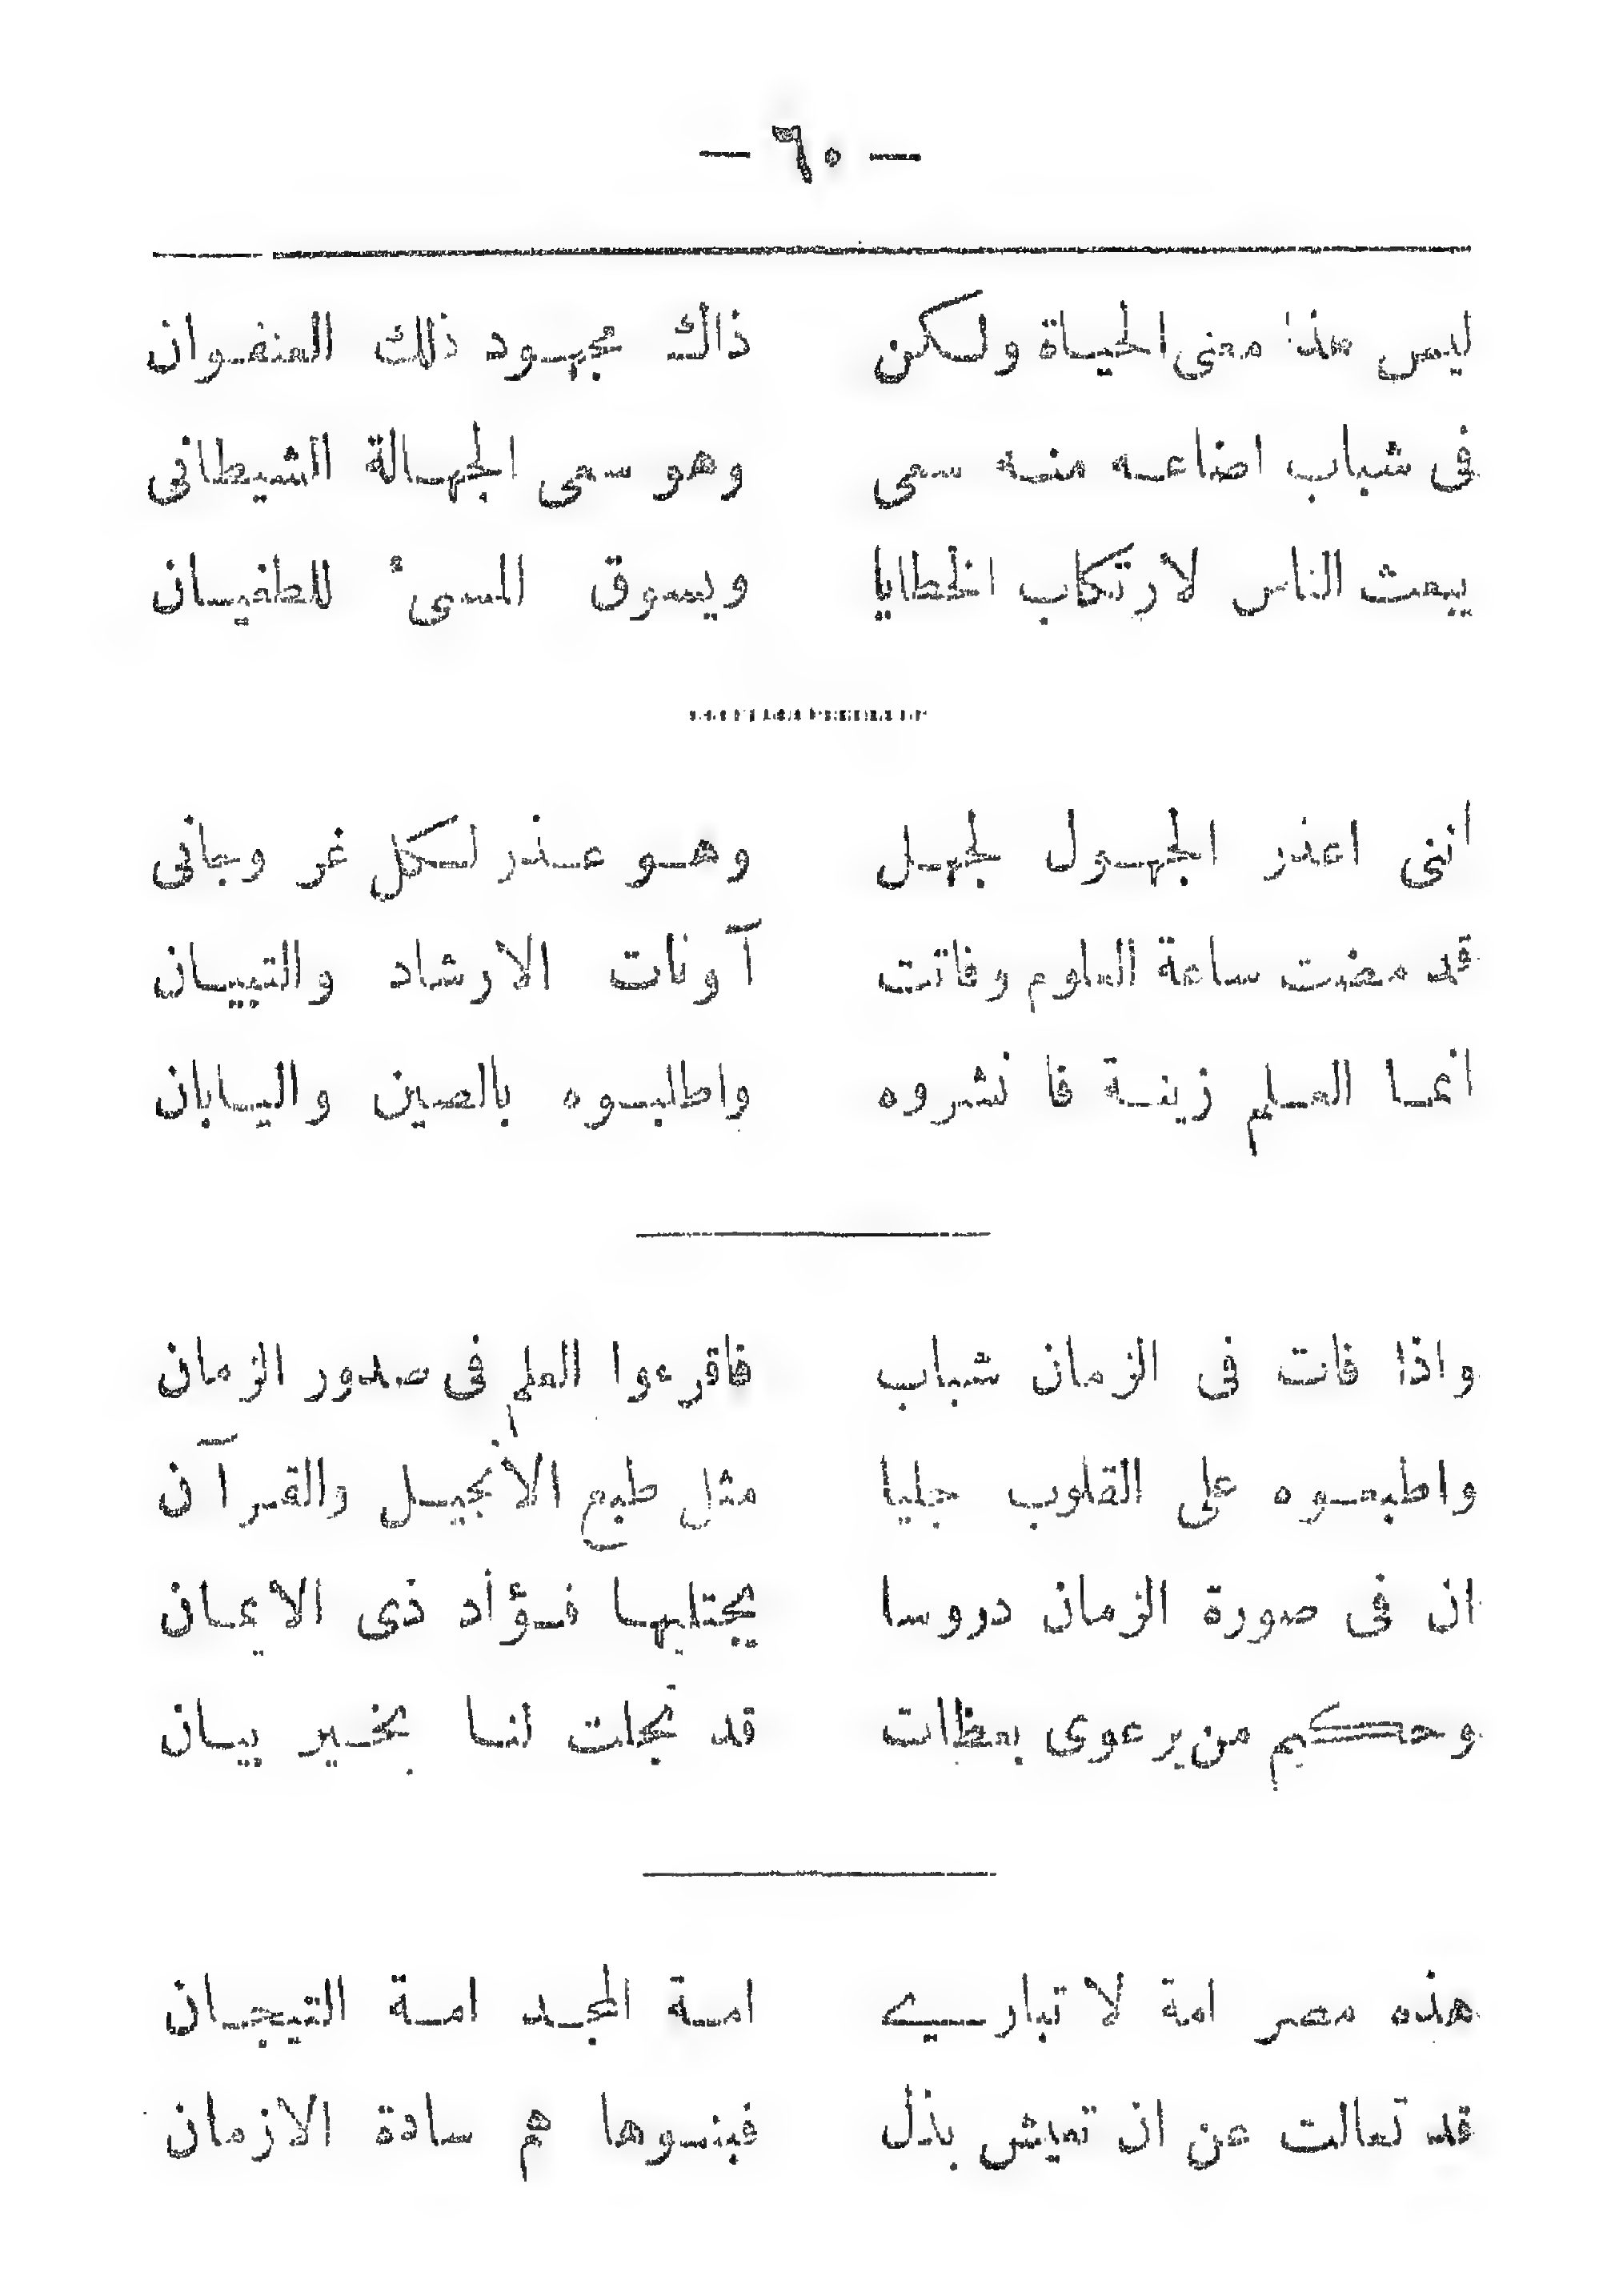 — ٦٠ —
ليس هذا معنى الحياة ولكن ذاك مجهود ذلك العنفوان
فى شباب اضاعه منه سعى وهو سعى الجهالة الشيطانى
يبعث الناس لارتكاب الخطايا ويسوق المسىء للطغيان
اننى اعذر الجهول لجهل وهو عذر لكل غر وجانى
قد مضت ساعة العلوم وفاتت آونات الارشاد والتبيان
انما العلم زينة فانشروه واطلبوه بالصين واليابان
واذا فات فى الزمان شباب فاقرءوا العلم فى صدور الزمان
واطبعوه على القلوب جليا مثل طبع الأنجيل والقرآن
ان فى صورة الزمان دروسا يجتليها فؤأد ذى الايمان
وحكيم من يرعوى بعظات قد تجلت لنا بخير بيان
هذه مصر امة لا تبارى امة المجد امة التيجان
قد تعالت عن ان تعيش بذل فبنوها هم سادة الازمان